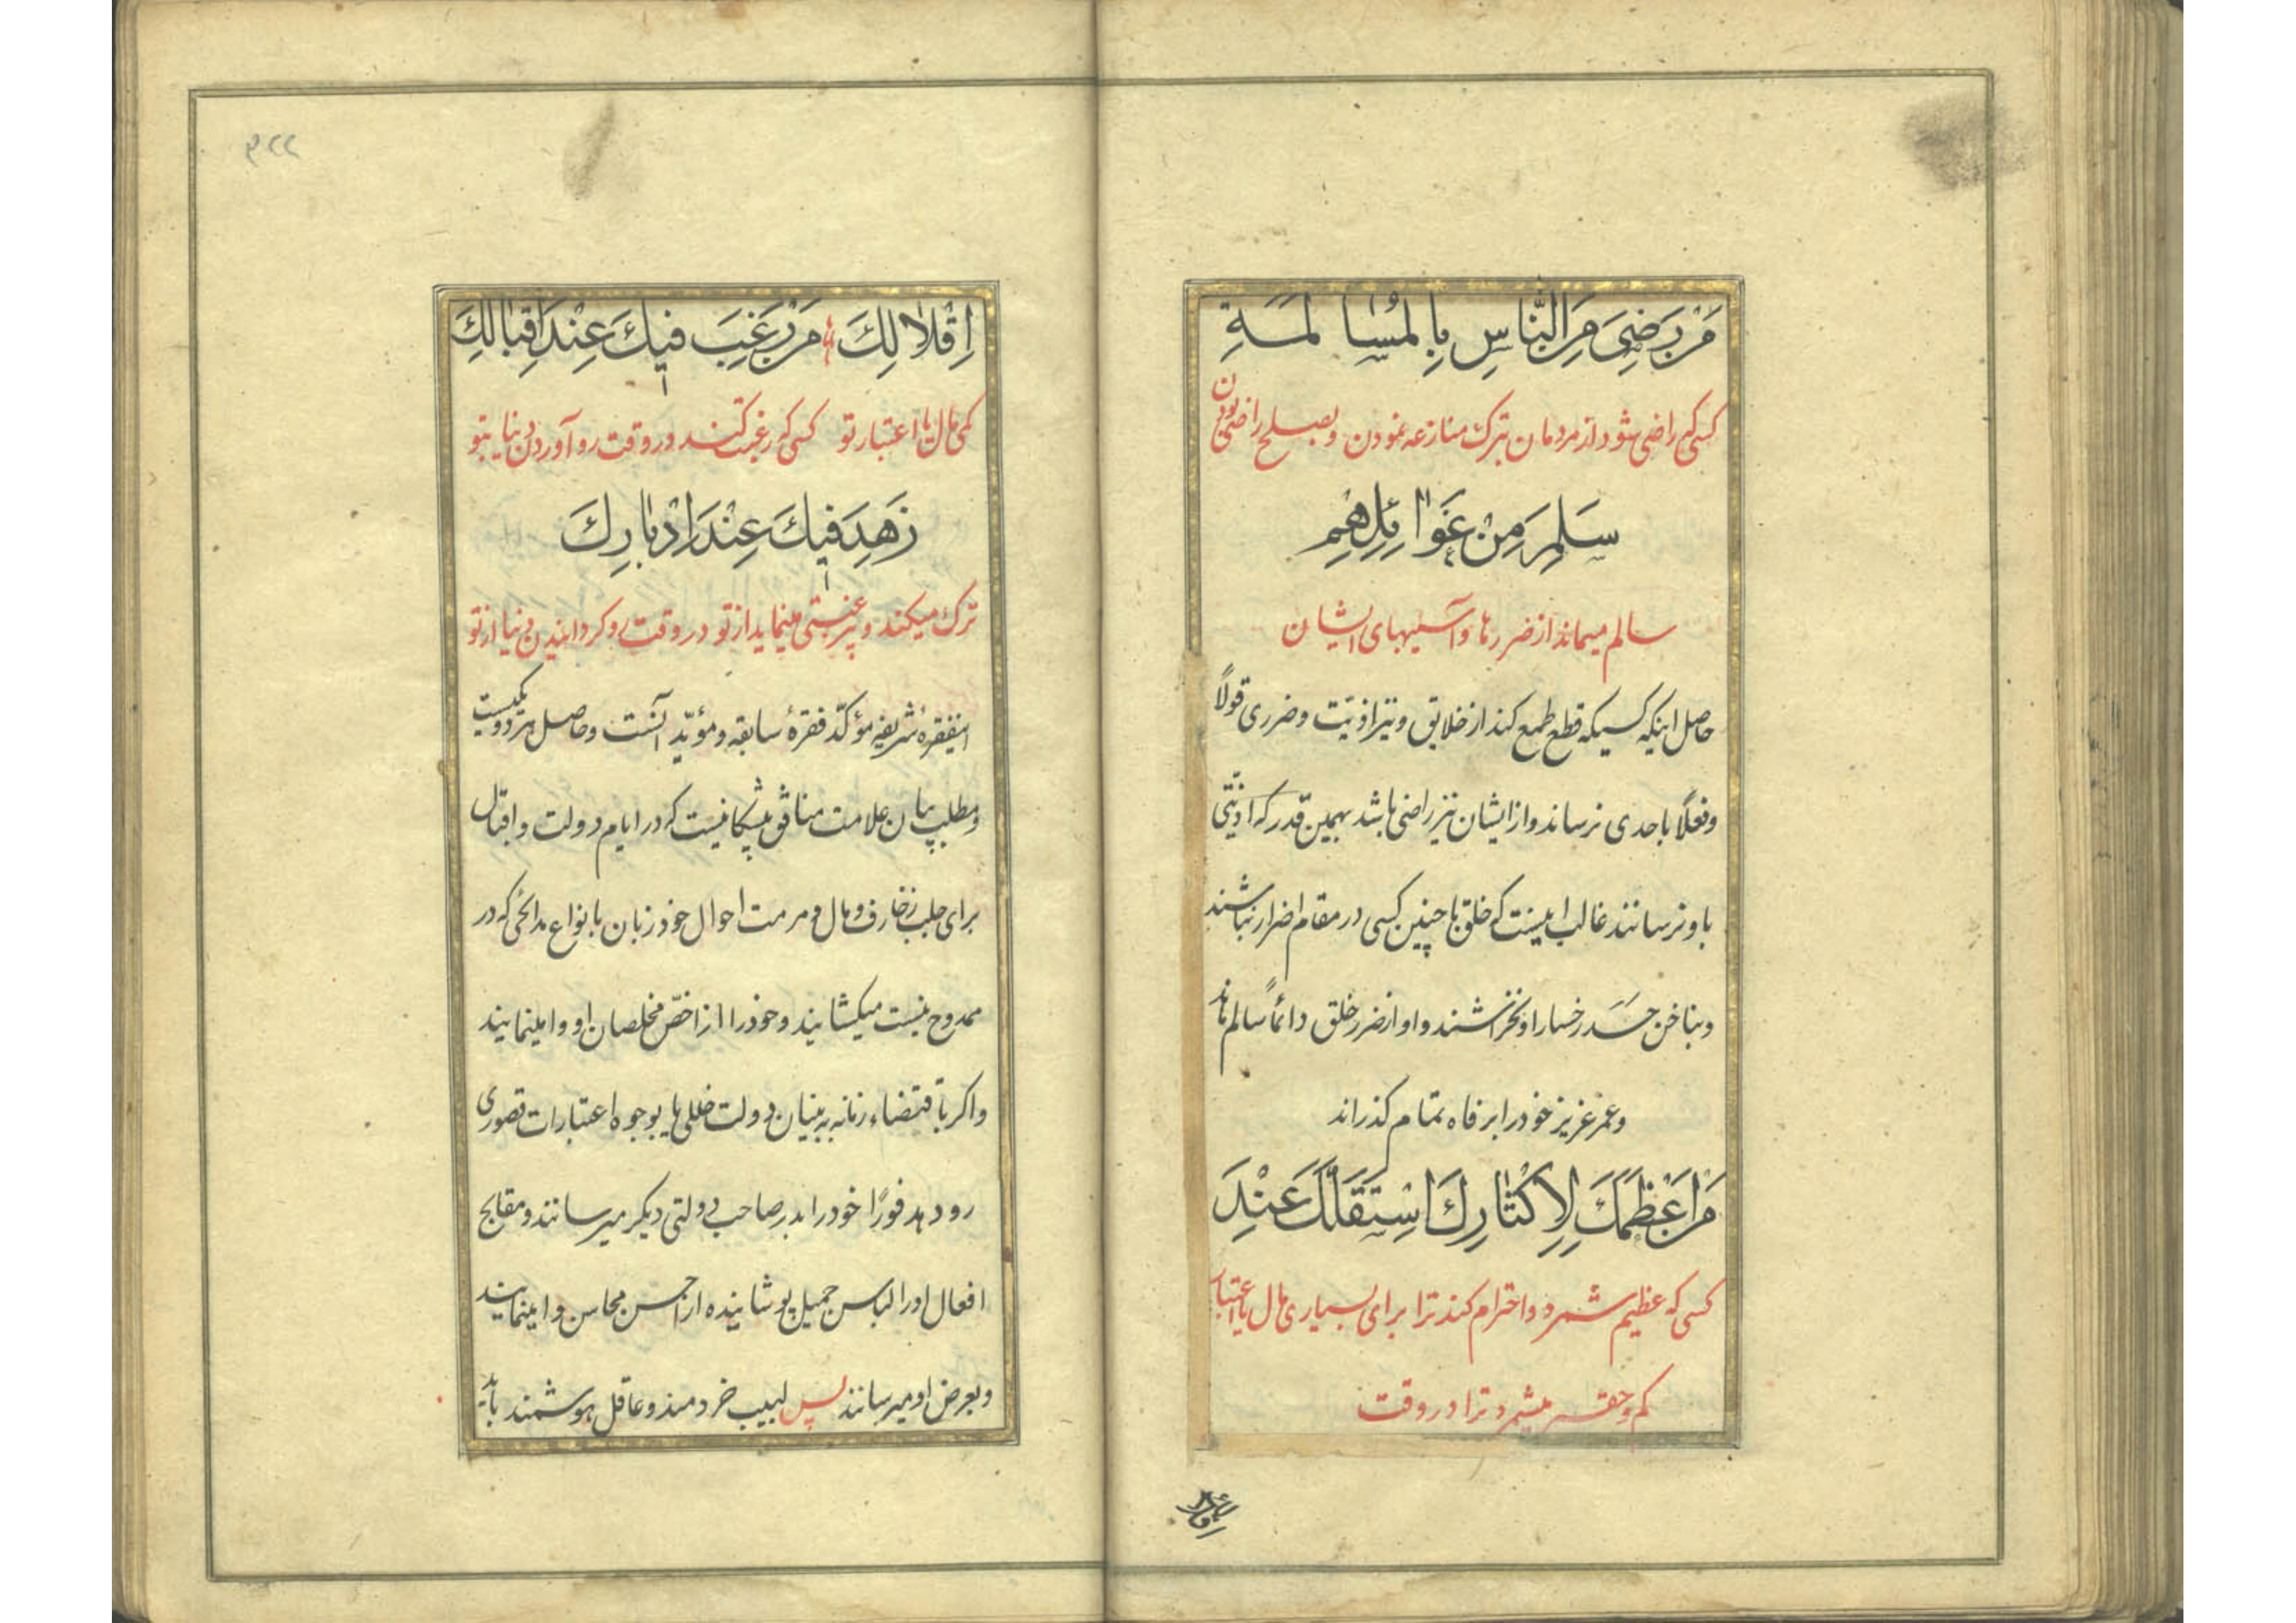 مَنْ رَضِیَ مِنَ النَّاسِ بِالْمُسَالَمَةِ
کسی که راضی شود از مردمان بترک منازعه نمودن و بصلح راضی بودن
سَلِمَ مِنْ غَوَائِلِهِمْ
سالم میماند از ضررها و آسیبهای ایشان
حاصل اینکه کسیکه قطع طمع کند از خلایق و نیز اذیت و ضرری قولاً
و فعلاً باحدی نرساند و از ایشان نیز راضی باشد بهمین قدر که اذیتی
باو نرسانند غالب اینست که خلق با چنین کسی در مقام اضرار نباشند
و بناخن حسد رخسار او نخراشند و او از ضرر خلق دائماً سالم ماند
و عمر عزیز خود را برفاه تمام گذراند
مَنْ اَعْظَمَكَ لِاِكْثَارِكَ اسْتَقَلَّكَ عِنْدَ
کسی که عظیم شمرد و احترام کند ترا برای بسیاری مال یا اعتبار
کم و حقیر میشمرد ترا در وقت
اقلالک
۹۲۲
اِقْلَالِكَ مَنْ رَغِبَ فِيكَ عِنْدَ اِقْبَالِكَ
کمی مال یا اعتبار تو کسی که رغبت کند در وقت رو آوردن دنیا بتو
زَهِدَ فِيكَ عِنْدَ اِدْبَارِكَ
ترک میکند و بیرغبتی مینماید از تو در وقت رو گردانیدن دنیا از تو
اینفقرهٔ شریفه مؤکّد فقرهٔ سابقه و مؤیّد آنست و حاصل هر دو یکیست
و مطلب بیان علامت منافق پیشگانیست که در ایام دولت و اقبال
برای جلب زخارف و مال و مرمت احوال خود زبان بانواع مدائحی که در
ممدوح نیست میگشایند و خود را از اخصّ مخلصان او وامینمایند
و اگر باقتضاء زمانه به بنیان دولت خللی یا بوجوه اعتبارات قصوری
رو دهد فوراً خود را بدر صاحب دولتی دیگر میرسانند و مقابح
افعال او را لباس جمیل پوشانیده از احسن محاسن وامینمایند
و بعرض او میرسانند پس لبیب خردمند و عاقل هوشمند باید